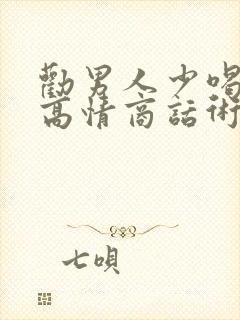 勸男人少喝
高情商話術
七唄